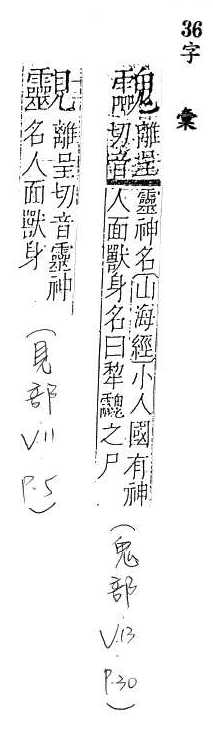 36字彙
䰱
離呈靈神名[山海經]小人國有神
切音人面獸身名曰犂䰱之尸
(鬼部 V.13 P.30)
離呈切音靈神
名人面獸身
(見部 V.11 P.5)